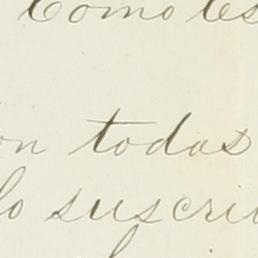 Como es
on todas
lo suscri